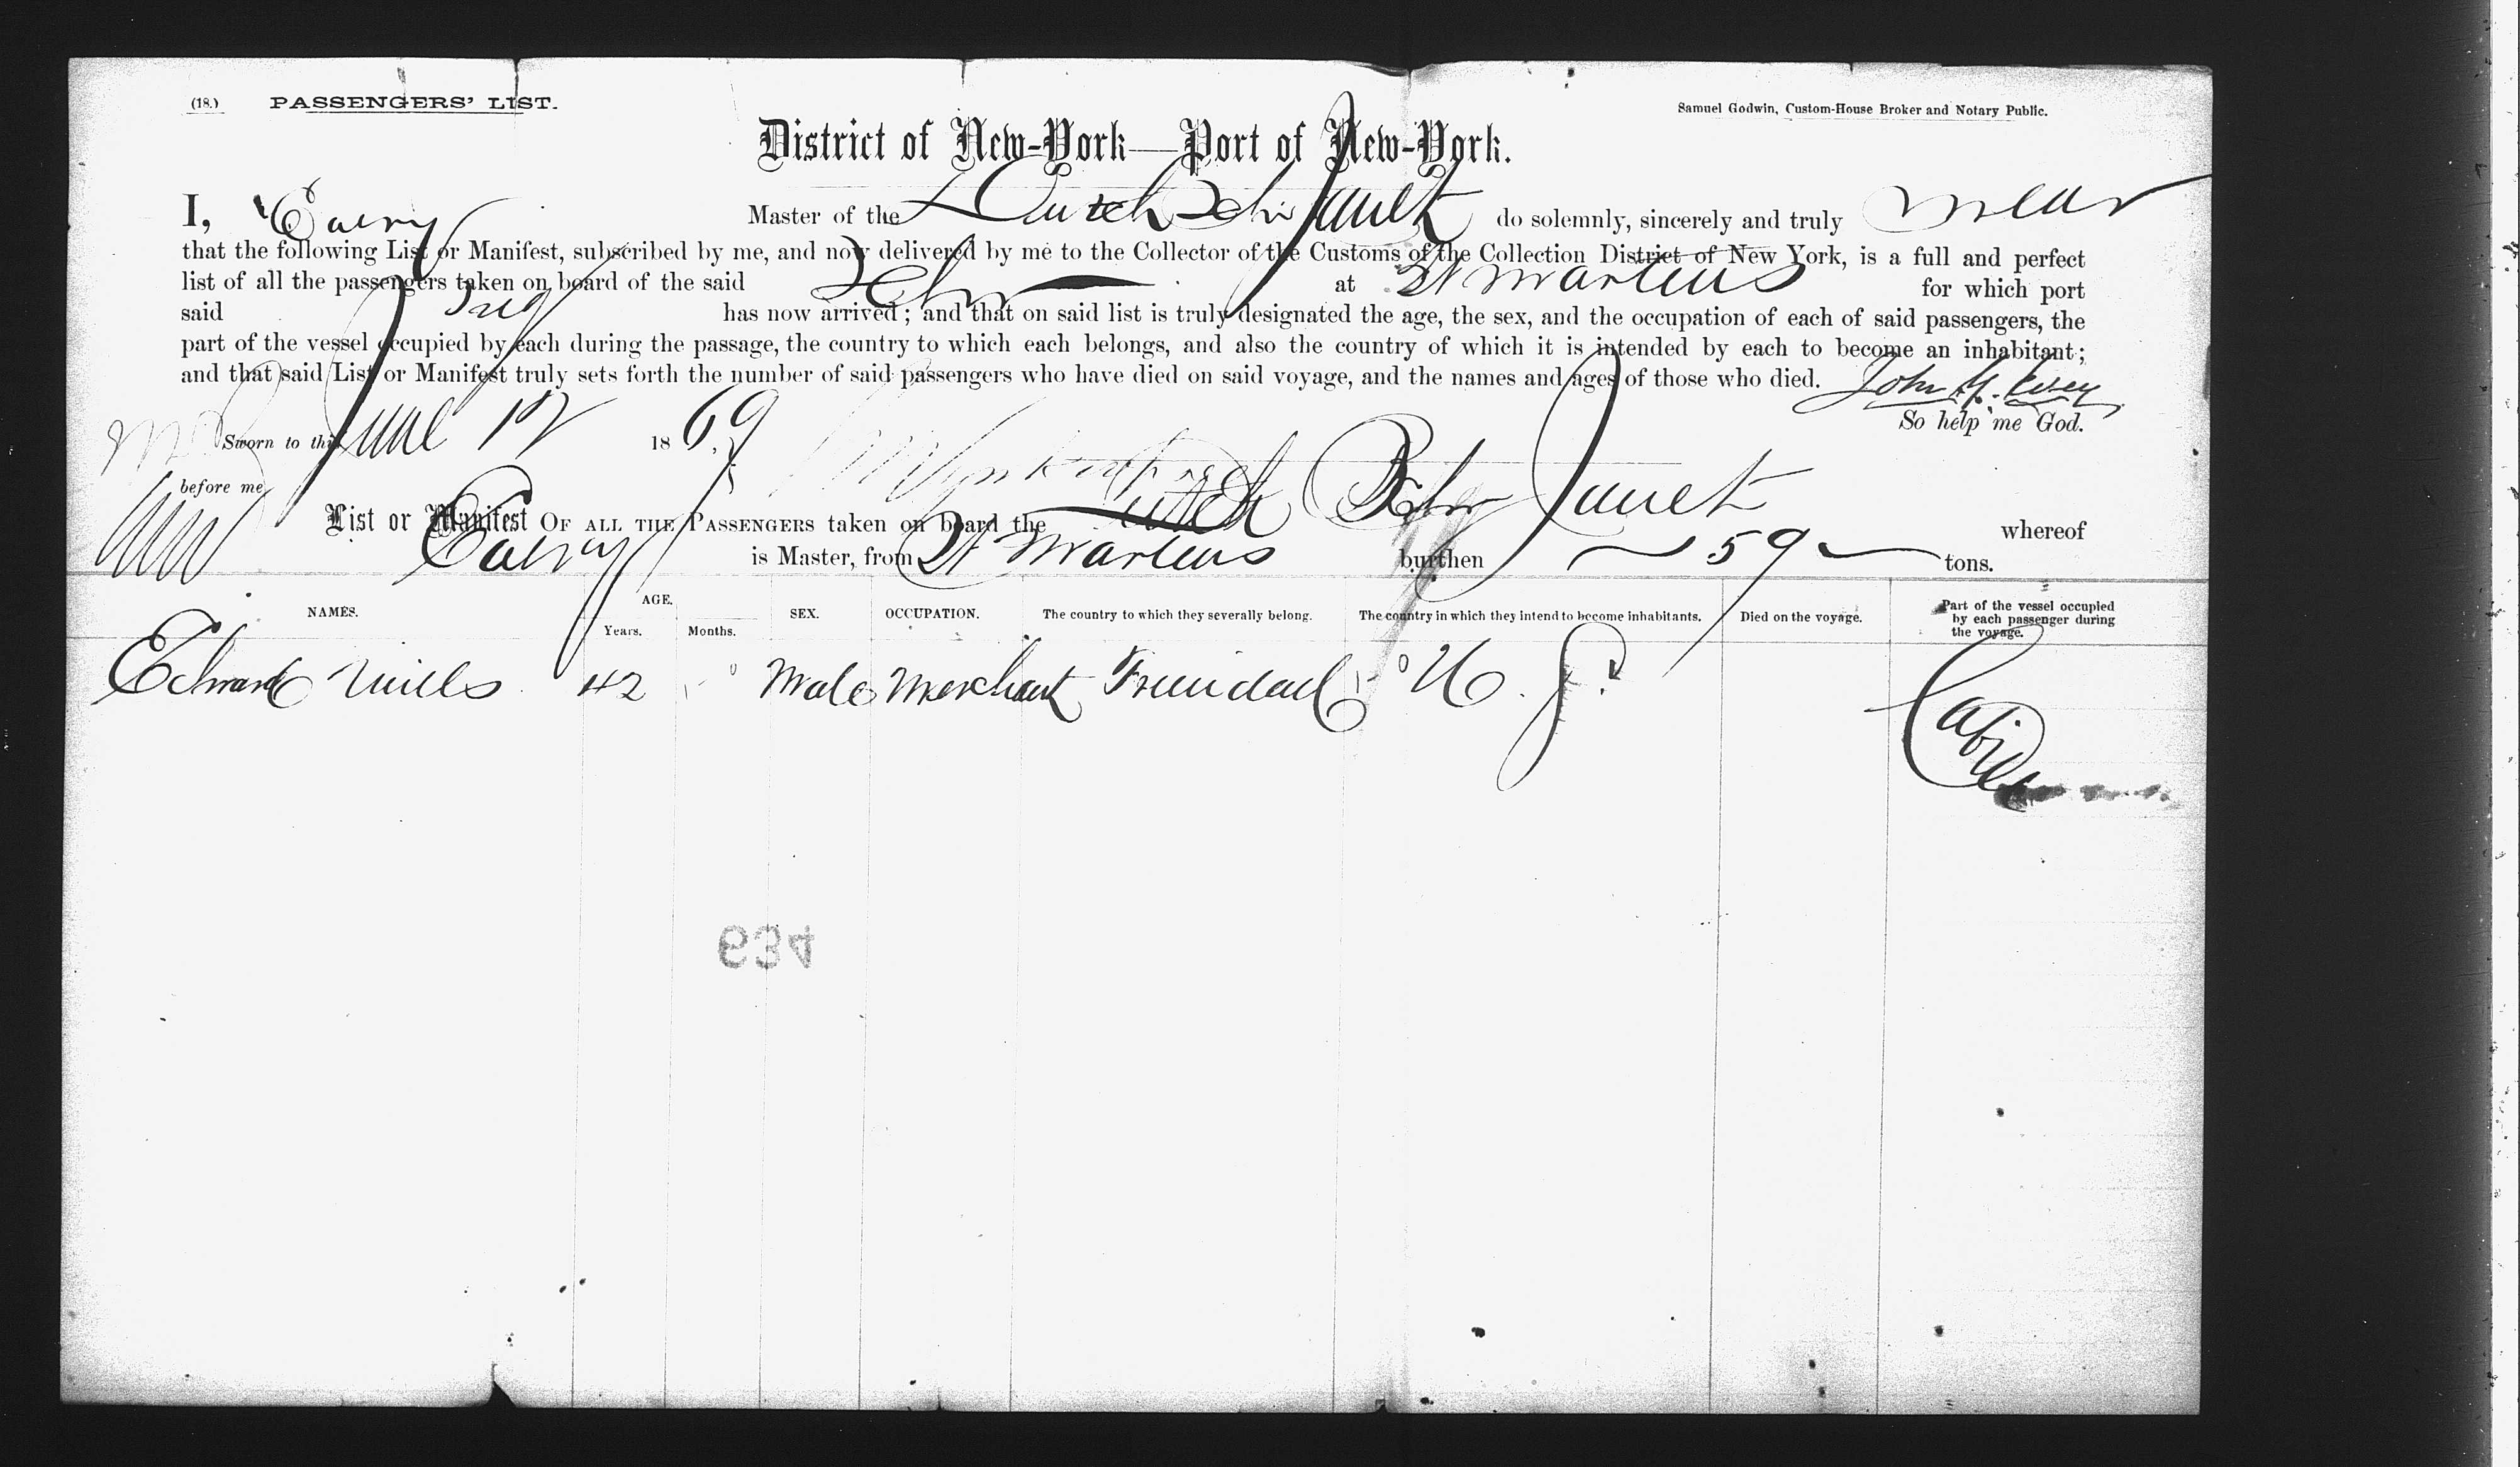 (18.) PASSENGERS' LIST.
Samuel Godwin, Custom-House Broker and Notary Public.
District of New-York—Port of New-York.
I, Master of the Dutch Schr Janet do solemnly, sincerely and truly swear
that the following List or Manifest, subscribed by me, and now delivered by me to the Collector of the Customs of the Collection District of New York, is a full and perfect
list of all the passengers taken on board of the said Schr at St Martins for which port
said has now arrived; and that on said list is truly designated the age, the sex, and the occupation of each of said passengers, the
part of the vessel occupied by each during the passage, the country to which each belongs, and also the country of which it is intended by each to become an inhabitant;
and that said List or Manifest truly sets forth the number of said passengers who have died on said voyage, and the names and ages of those who died. John
So help me God.
Sworn to this June 12 1869
before me
List or Manifest OF ALL THE PASSENGERS taken on board the Dutch Schr Janet whereof
is Master, from St Martins burthen 59 tons.
NAMES. AGE. Years. Months. SEX. OCCUPATION. The country to which they severally belong. The country in which they intend to become inhabitants. Died on the voyage. Part of the vessel occupied by each passenger during the voyage.
Edward Mills 42 Male Merchant Trinidad U.S. Cabin
634